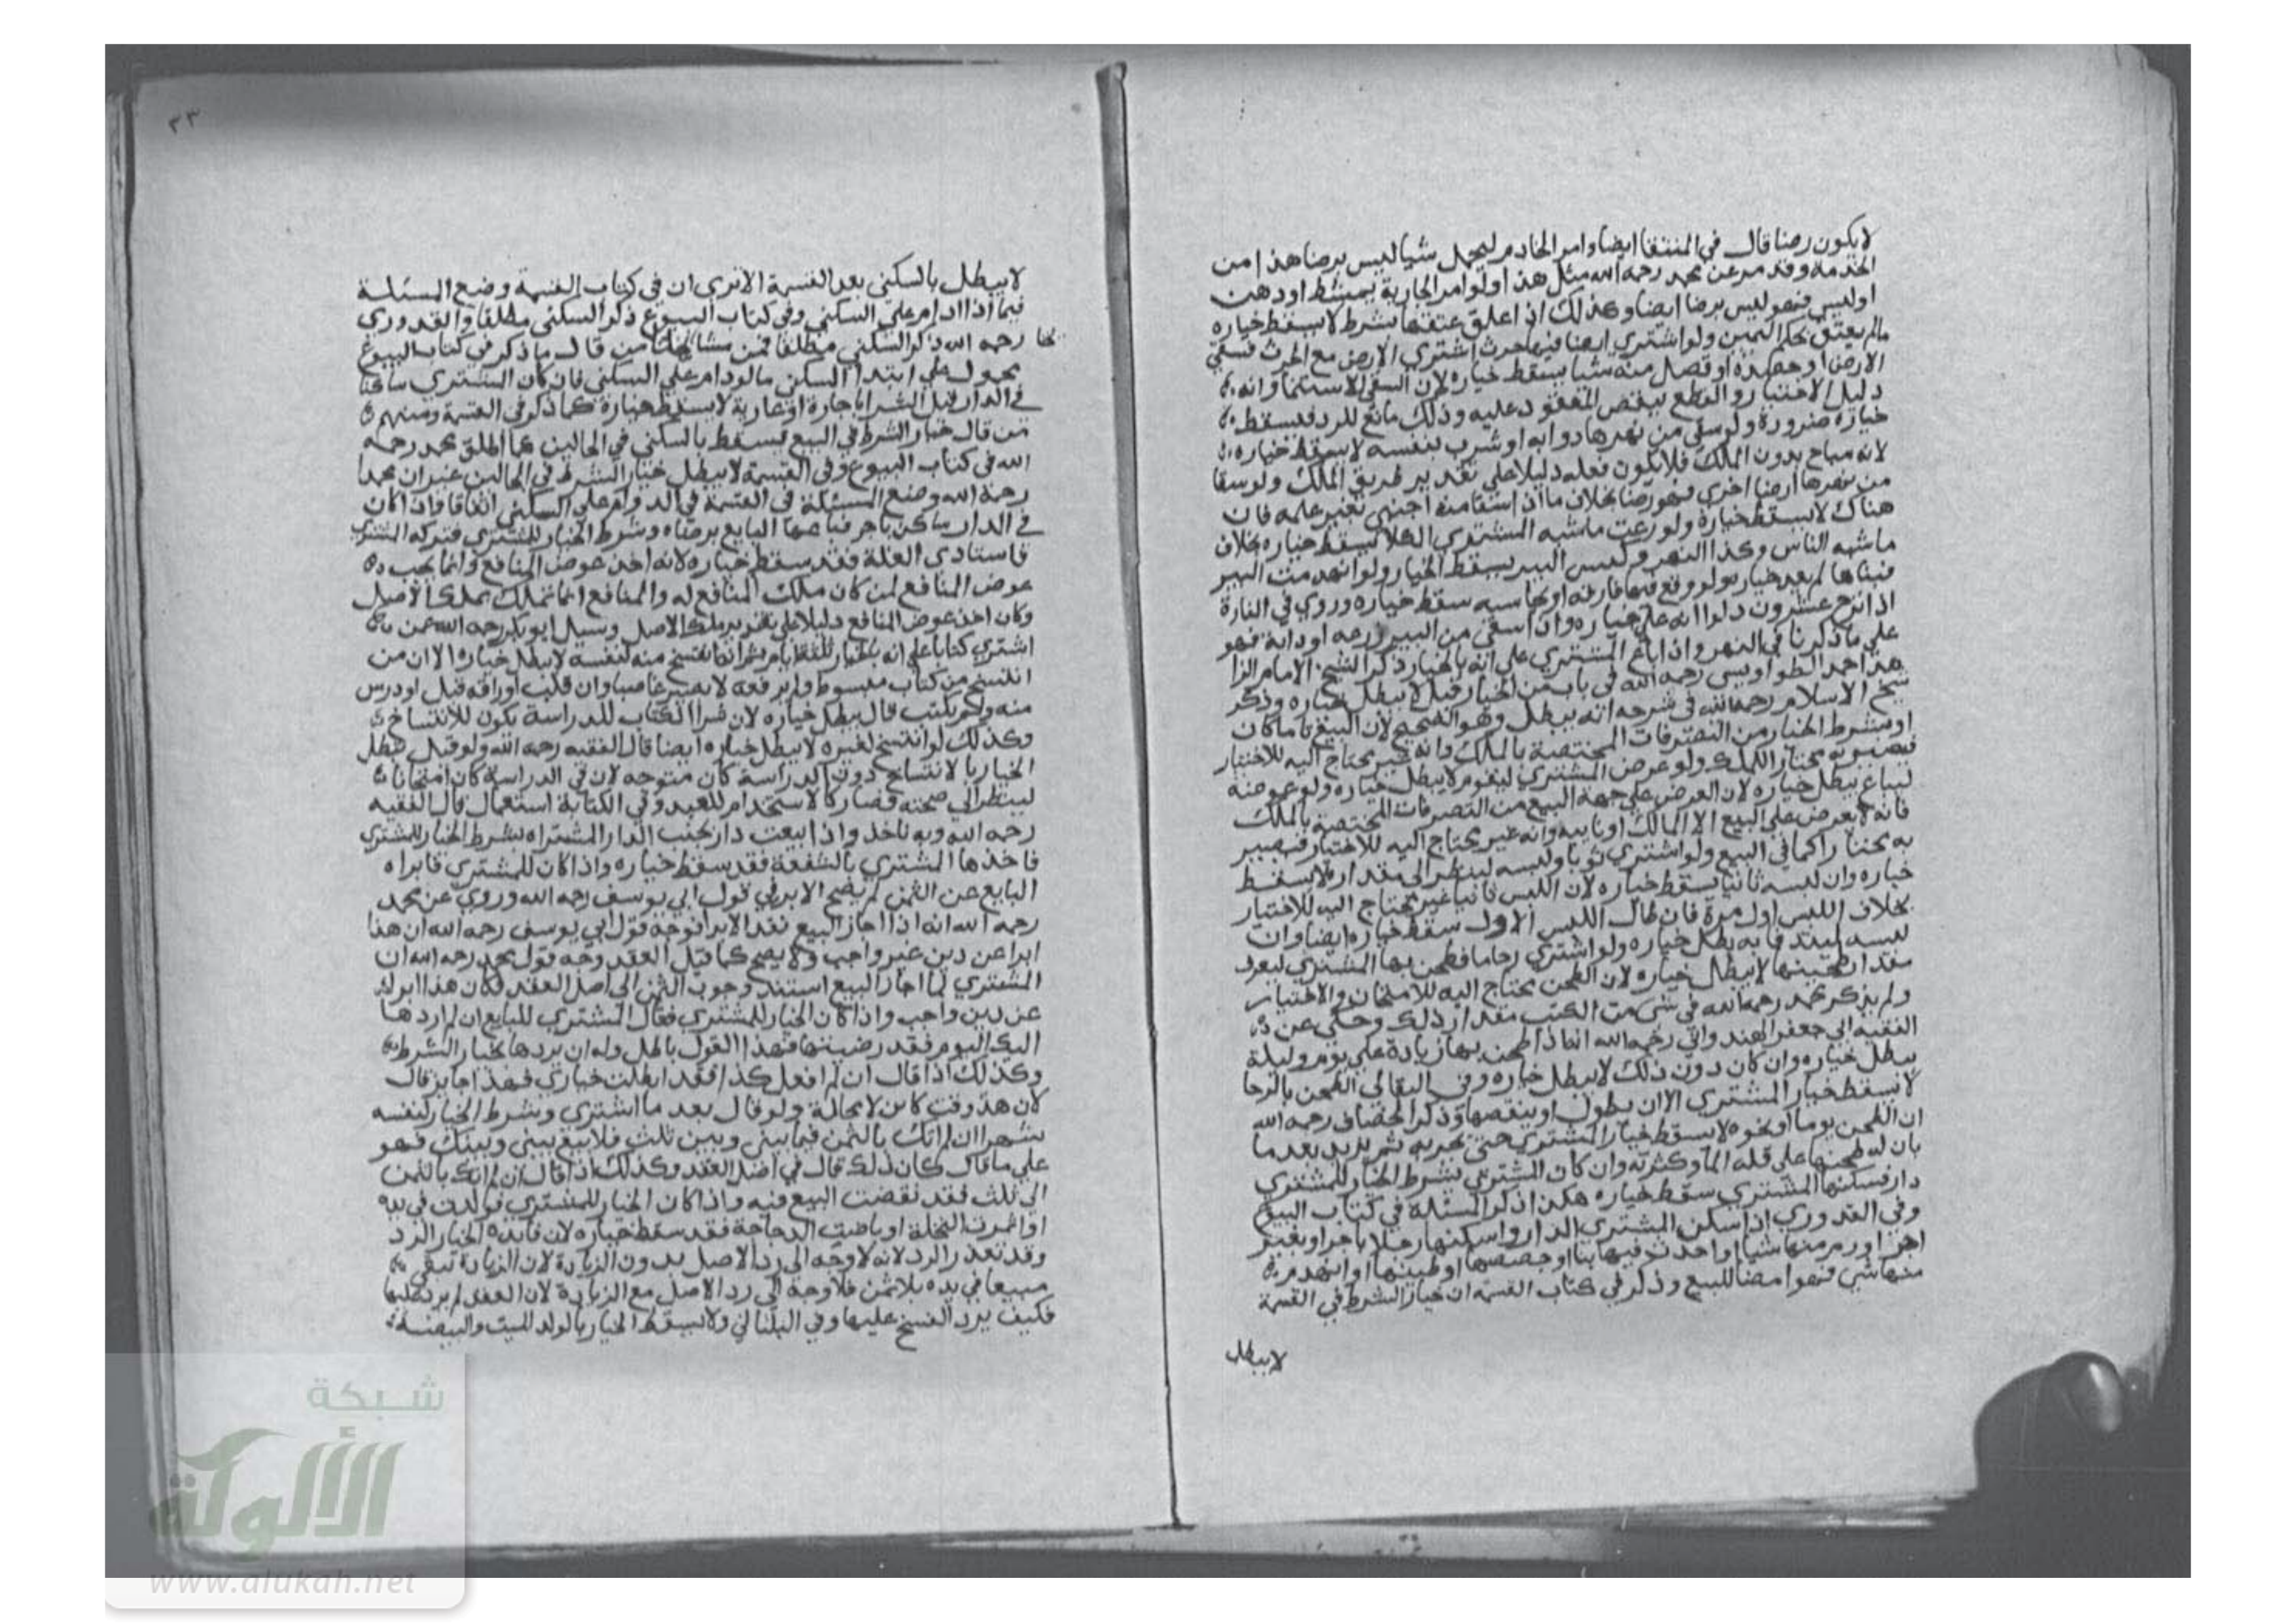 لا يكون رضا قال في المنتقا ايضا وامر الخادم ليحمل شيا ليس برضا هذا من
الخدمة وقد مر عن محمد رحمه الله مثل هذا ولو امر الجارية بمشط او دهن
او لبس فهو ليس برضا ايضا وكذلك اذا علق عتقها بشرط لا يسقط خياره
مالم يعتق بحكم اليمين ولو اشترى ارضا فيها حرث اشتري الارض مع الحرث فسقي
الارض او حصده او فصل منه شيا يسقط خياره لان السقي لاستنما وانه
دليل الاختيار والقطع ينقص المعقود عليه وذلك مانع للرد فيسقط
خياره ضرورة ولو سقي من نهرها دوابه او شرب لنفسه لا يسقط خياره
لانه مباح بدون الملك فلا يكون فعله دليلا على تقدير طريق الملك ولو سقا
من نهرها ارضا اخري فهو رضا بخلاف ما اذا سقا منه اجنبي بغير علمه فان
هناك لا يسقط خياره ولو رعت ماشيه المشتري الكلا يسقط خياره بخلاف
ماشيه الناس وكذا النهر وكبس البير يسقط الخيار ولو انهدمت البير
فبناها لم يعد خياره ولو وقع فيها فارة او نجاسه سقط خياره وروي في الفارة
اذا نزح عشرون دلوا انه على خياره وان اسقي من البير زرعه او دابة فهو
علي ما ذكرنا في النهر واذا باع المشتري على انه بالخيار ذكر الشيخ الامام الزا
هد احمد الطواويسي رحمه الله في باب من الخيار قيل لا يبطل خياره وذكر
شيخ الاسلام رحمه الله في شرحه انه يبطل وهو الصحيح لان البيع تاما كان
او بشرط الخيار من التصرفات المختصة بالملك وانه غير محتاج اليه للاختبار
فيصير به مختار الملك ولو عرض المشتري ليقوم لا يبطل خياره ولو عرضه
ليباع يبطل خياره لان العرض علي جهة البيع من التصرفات المختصة بالملك
فانه لا يعرض على البيع الا المالك او نايبه وانه غير محتاج اليه للاختبار فيصير
به مختارا كما في البيع ولو اشتري ثوبا ولبسه لينظر الى مقداره لا يسقط
خياره وان لبسه ثانيا يسقط خياره لان اللبس ثانيا غير محتاج اليه للاختبار
بخلاف اللبس اول مرة فان طال اللبس الاول سقط خياره ايضا وان
لبسه ليتدفا به بطل خياره ولو اشتري رحاما فطحن بها المشتري ليعرف
مقدار طحينها لا يبطل خياره لان الطحن يحتاج اليه للامتحان والاختبار
ولم يذكر محمد رحمه الله في شى من الكتب مقدار ذلك وحكى عن
الفقيه ابي جعفر الهندواني رحمه الله انه اذا طحن بها زيادة على يوم وليلة
يبطل خياره وان كان دون ذلك لا يبطل خياره وفي البقالي الطحن بالرحا
لا يسقط خيار المشتري الا ان يطول او ينقصها وذكر الخصاف رحمه الله
ان الطحن يوما او نحوه لا يسقط خيار المشتري حتى يجربه ثم يزيد بعد ما
بان له طحينها على قلة الما وكثرته وان كان المشتري بشرط الخيار للمشتري
دار فسكنها المشتري سقط خياره هكذا ذكر المسئلة في كتاب البيوع
وفي القدوري اذا سكن المشتري الدار واسكنها رجلا باجر او بغير
اجر او رم منها شيا او احدث فيها بنا او جصصها او طينها او انهدم
منها شي فهو امضا للبيع وذكر في كتاب القسمة ان خيار الشرط في القسمة
لا يبطل
٣٣
لا يبطل بالسكني بعد القسمة الا ترى ان في كتاب القسمة وضع المسئلة
فيما اذا دام علي السكني وفي كتاب البيوع ذكر السكني مطلقا والقدوري
رحمه الله ذكر السكني مطلقا فمن مشايخنا من قال ما ذكر في كتاب البيوع
محمول على ابتدا السكن مالو دام علي السكني فان كان المشتري ساكنا
في الدار قبل الشرا باجارة او عارية لا يسقط خياره كما ذكر في القسمة ومنهم
من قال خيار الشرط في البيع يسقط بالسكني في الحالين عما اطلق محمد رحمه
الله في كتاب البيوع وفي القسمة لا يبطل خيار الشرط في الحالين غير ان محمدا
رحمه الله وضع المسئلة في القسمة في الدوام على السكني اتفاقا فاذا كان
في الدار ساكن باجر فباعها البايع برضاه وشرط الخيار للمشتري فتركه المشتري
فاستادى الغلة فقد سقط خياره لانه اخذ عوض المنافع وانما يجب
عوض المنافع لمن كان ملك المنافع له والمنافع انما تملك بملك الاصل
وكان اخذ عوض المنافع دليلا على تقرير ملك الاصل وسيل ابو بكر رحمه الله عمن
اشترى كتابا على انه بالخيار ثلاثة ايام ثم انه انتسخ منه لنفسه لا يبطل خياره الا ان من
انتسخ من كتاب مبسوط ولم يرفعه لا يصير غاصبا وان قلب اوراقه قيل او درس
منه ولم يكتب قال يبطل خياره لان شرا الكتاب للدراسة يكون للانتساخ
وكذلك لو انتسخ لغيره لا يبطل خياره ايضا قال الفقيه رحمه الله ولو قيل يبطل
الخيار بالانتساخ دون الدراسة كان متوجه لان في الدراسة كان امتحانا
لينظر الي صحته فصار كالاستخدام للعبد وفي الكتابة استعمال قال الفقيه
رحمه الله وبه ناخذ واذا بيعت دار بجنب الدار المشتراه بشرط الخيار للمشتري
فاخذها المشتري بالشفعة فقد سقط خياره واذا كان للمشتري فابراه
البايع عن الثمن لم يصح الابرا في قول ابي يوسف رحمه الله وروي عن محمد
رحمه الله انه اذا اجاز البيع نفذ الابرا فوجه قول ابي يوسف رحمه الله ان هذا
ابرا عن دين غير واجب ولا يصح كما قبل العقد وجه قول محمد رحمه الله ان
المشتري لما اجاز البيع استند وجوب الثمن الى اصل العقد فكان هذا ابراء
عن دين واجب واذا كان الخيار للمشتري فقال المشتري للبايع ان لم اردها
اليك اليوم فقد رضيتها فهذا القول باطل وله ان يردها بخيار الشرط
وكذلك اذا قال ان لم افعل كذا فقد ابطلت خياري فهذا جايز قال
لان هذا وقت كاين لا محالة ولو قال بعد ما اشتري وبشرط الخيار لنفسه
شهرا ان لم اتك بالثمن فيما بيني وبين ثلث فلا بيع بيني وبينك فهو
علي ما قال كان ذلك قال في اصل العقد وكذلك اذا قال ان لم اتك بالثمن
الى ثلث فقد نقضت البيع فيه واذا كان الخيار للمشتري فولدت في يده
او اثمرت النخلة او باضت الدجاجة فقد سقط خياره لان فايدة الخيار الرد
وقد تعذر الرد لانه لا وجه الى رد الاصل بدون الزيادة لان الزيادة تبقى
مبيعا في يده بلا ثمن فلا وجه الى رد الاصل مع الزيادة لان العقد لم يرد عليها
فكيف يرد الفسخ عليها وفي البقالي ولا يسقط الخيار بالولد الميت والبيضة
شبكة
الألوكة
www.alukah.net